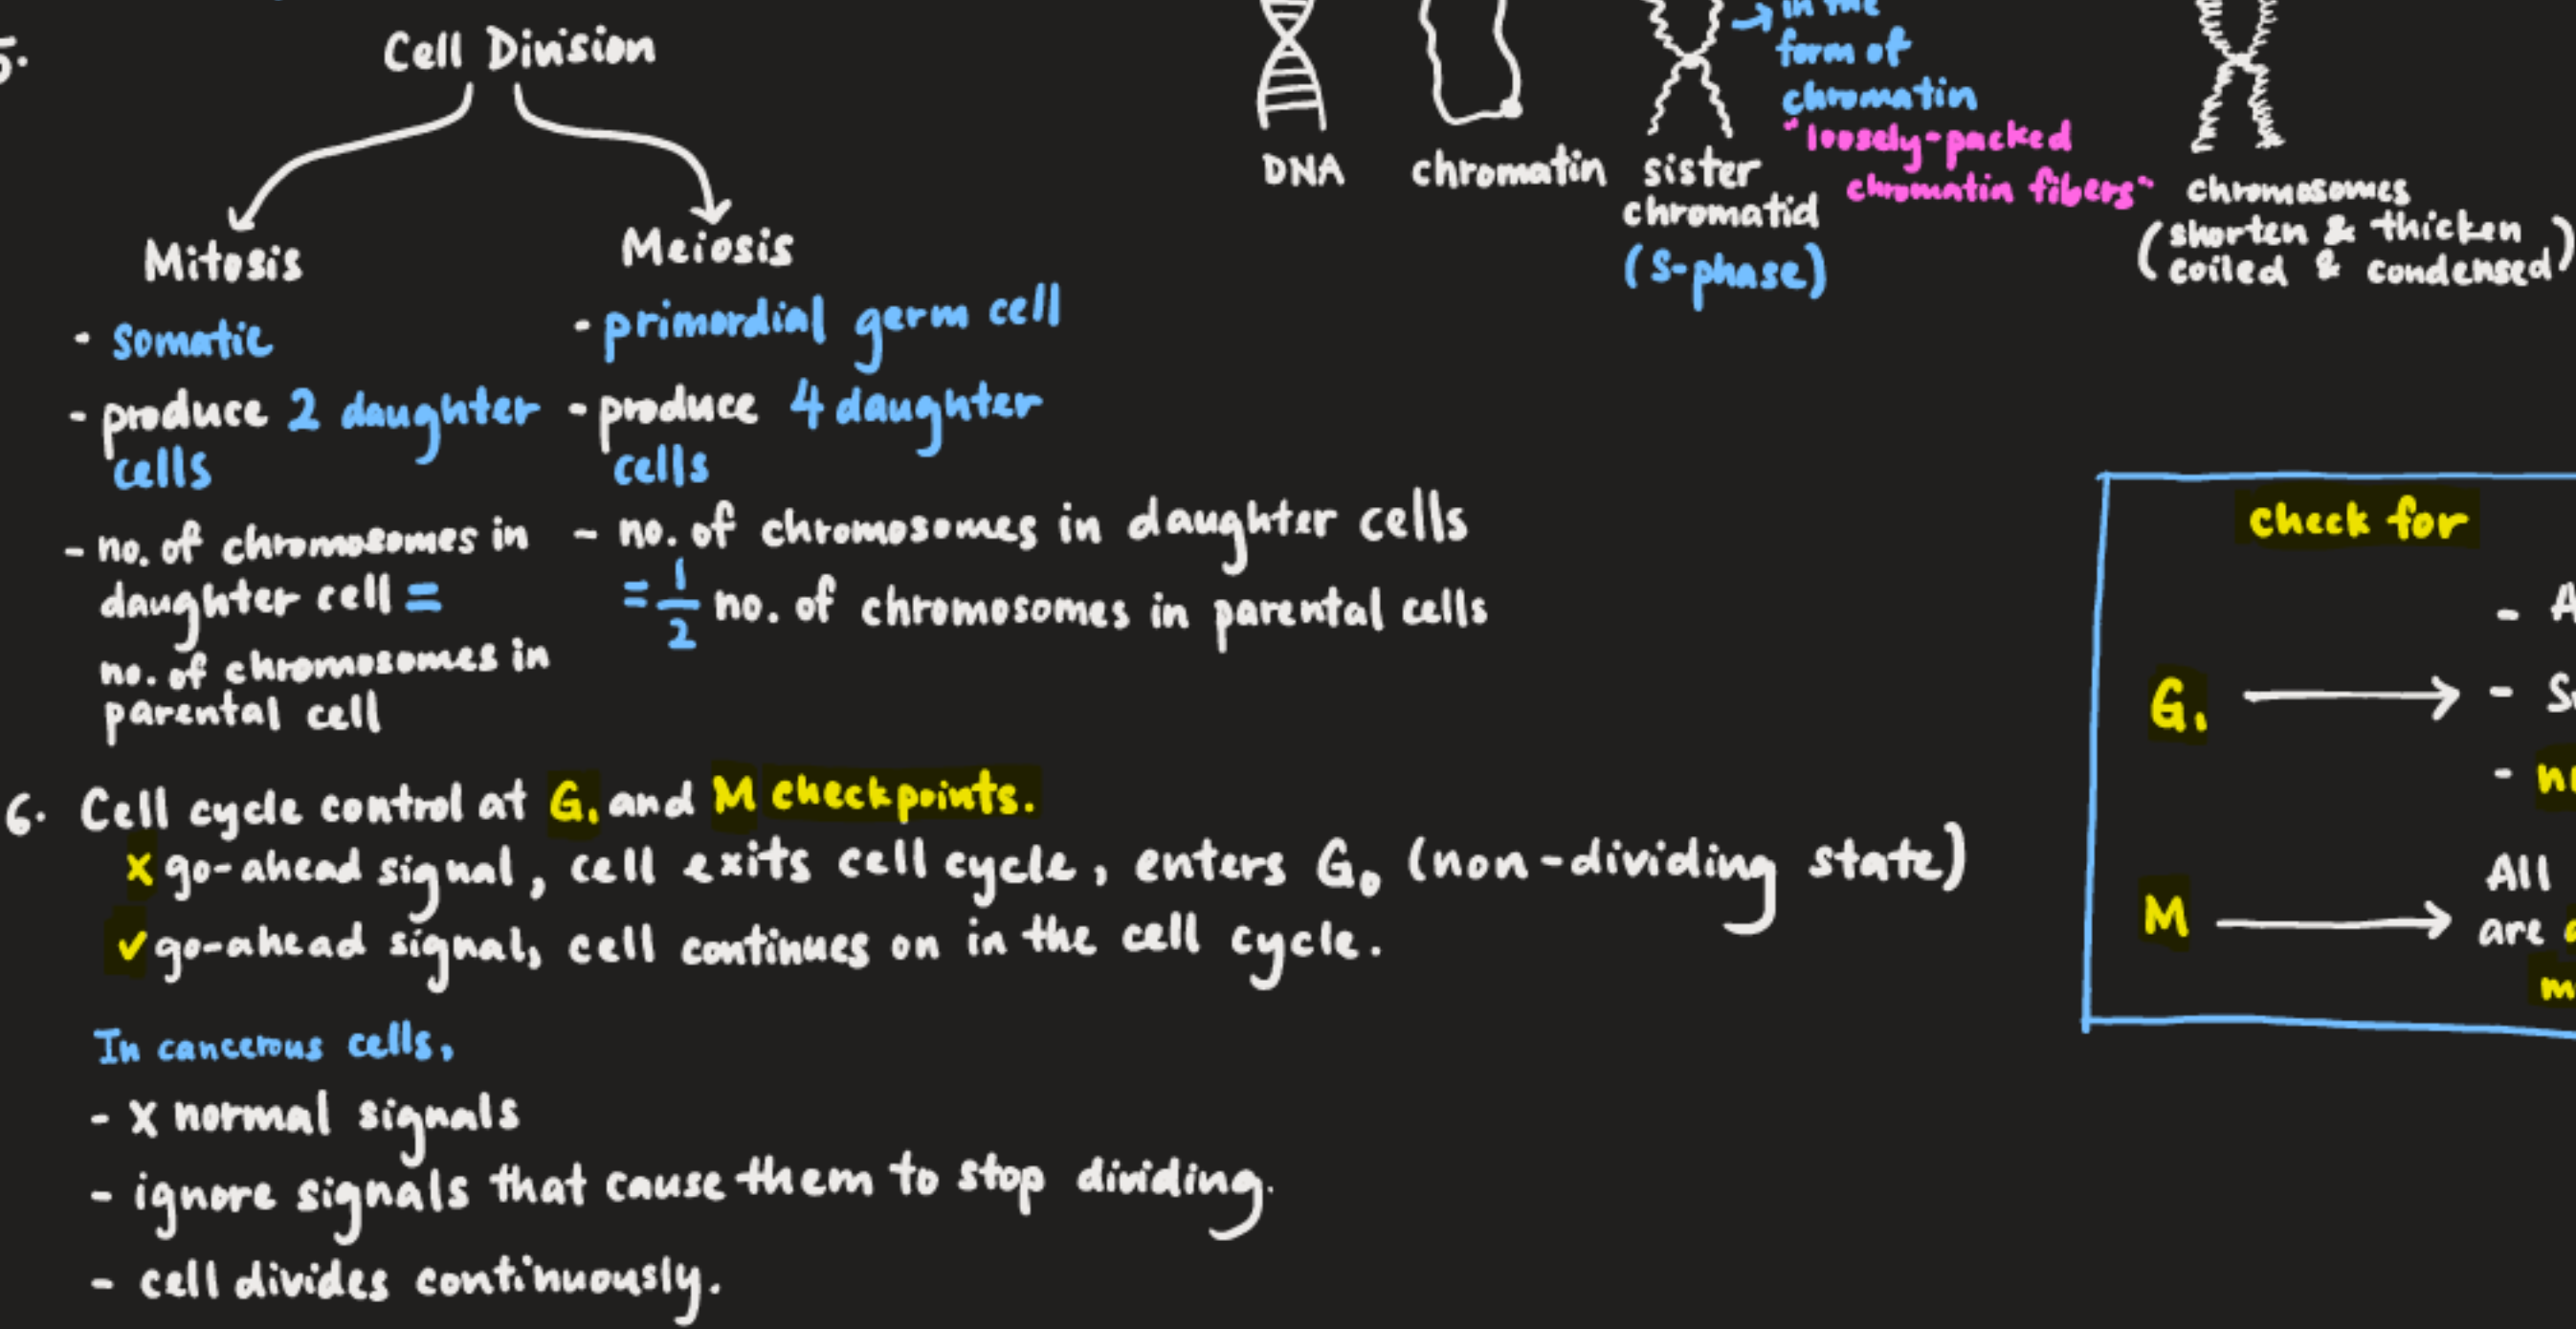 5.
Cell Division
Mitosis
- somatic
- produce 2 daughter
cells
- no. of chromosomes in
daughter cell =
no. of chromosomes in
parental cell
Meiosis
- primordial germ cell
- produce 4 daughter
cells
- no. of chromosomes in daughter cells
= 1/2 no. of chromosomes in parental cells
DNA
chromatin
sister
chromatid
(S-phase)
→ in the
form of
chromatin
"loosely-packed
chromatin fibers"
chromosomes
(shorten & thicken
coiled & condensed)
6. Cell cycle control at G₁ and M checkpoints.
x go-ahead signal, cell exits cell cycle, enters G₀ (non-dividing state)
✓ go-ahead signal, cell continues on in the cell cycle.
In cancerous cells,
- x normal signals
- ignore signals that cause them to stop dividing.
- cell divides continuously.
check for
G₁ →
M → All
are